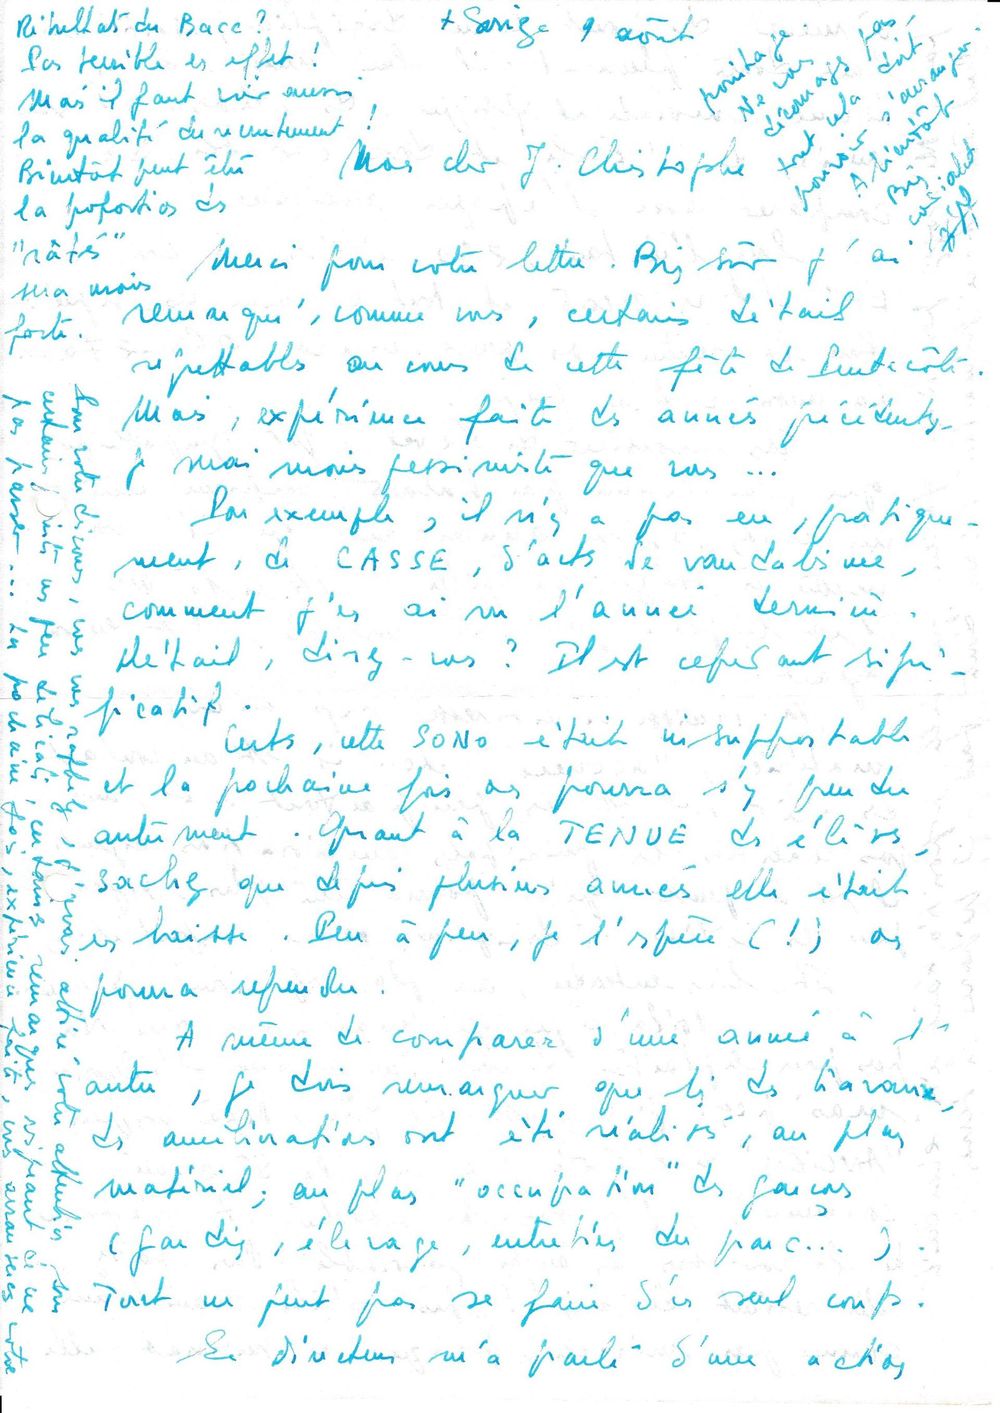 + Sarige 9 août
Mon cher J. Christophe
Merci pour votre lettre. Bien sûr j'ai
remarqué, comme vous, certains détails
regrettables au cours de cette fête de Pentecôte.
Mais, expérience faite des années précédentes,
je serai moins pessimiste que vous ...
Par exemple, il n'y a pas eu, pratique-
ment, de CASSE, d'actes de vandalisme,
comment j'en ai vu l'année dernière.
Détail, direz-vous ? Il est cependant signi-
ficatif.
Certes, cette SONO était insupportable
et la prochaine fois on pourra s'y prendre
autrement. Quant à la TENUE des élèves,
sachez que depuis plusieurs années elle était
en baisse. Peu à peu, je l'espère (!) on
pourra reprendre.
A même de comparer d'une année à l'
autre, je dois remarquer que si des travaux,
des améliorations ont été réalisés, au plan
matériel; au plan "occupation" des garçons
(jardin, élevage, entretien du parc...).
Tout ne peut pas se faire d'un seul coup.
Le directeur m'a parlé d'une action
Résultat du Bacc ?
Pas terrible en effet !
Mais il faut voir aussi
la qualité du recrutement !
Bientôt peut être
la proportion des
"râtés"
sera moins
forte.
Pour votre discours, vous vous rappelez, j'avais attiré votre attention sur
certains points un peu délicats, certaines remarques risquant de ne
pas passer... La prochaine fois, expérience faite, vous arrangerez votre
Ne vous
découragez pas,
tout cela doit
pouvoir s'arranger.
A bientôt
Bien
cordialement